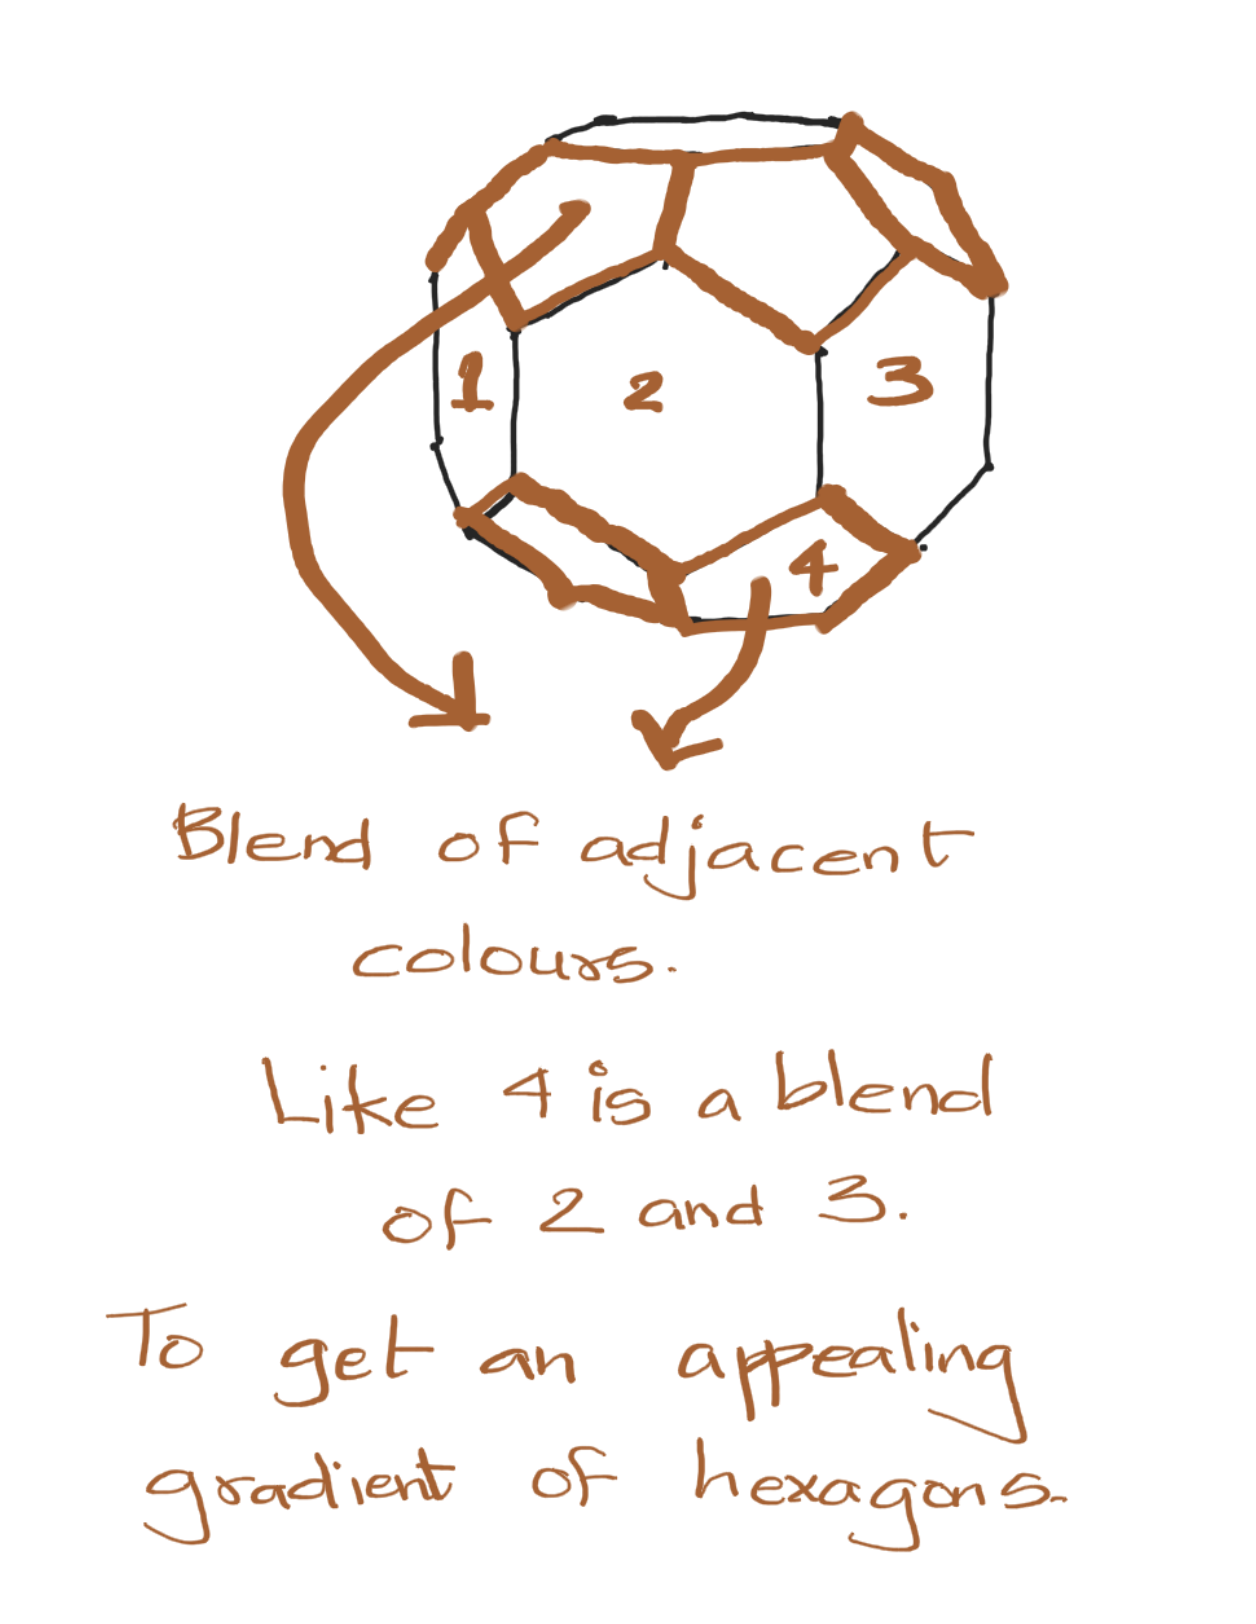 1 2 3
4
Blend of adjacent
colours.
Like 4 is a blend
of 2 and 3.
To get an appealing
gradient of hexagons.